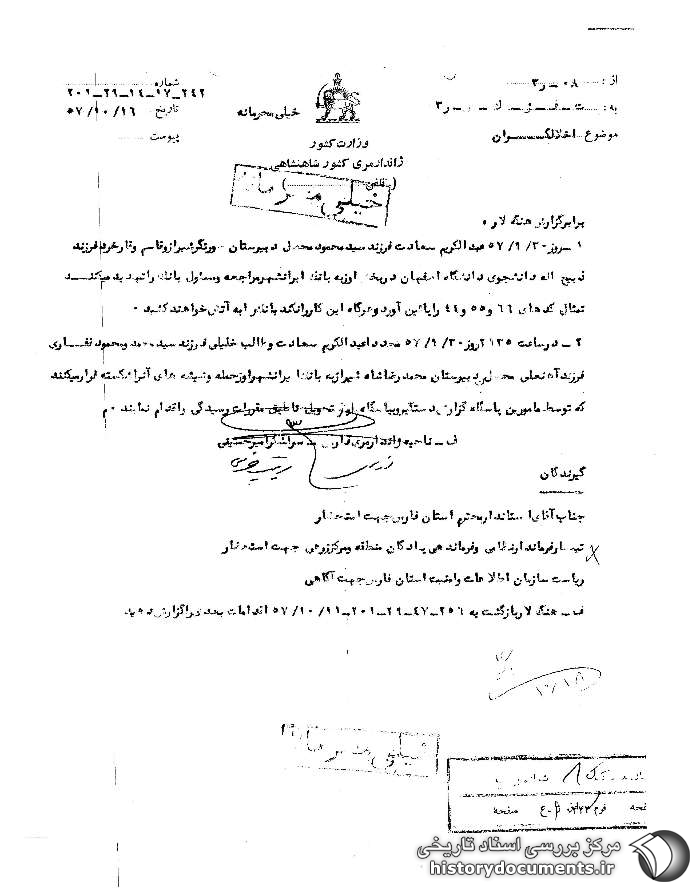 از: ۰۸ــر۳
شماره ۲۴۲ــ۱۷ــ۱۴ــ۲۹ــ۲۰۱
به:
تاریخ ۵۷/۱۰/۱۶
خیلی محرمانه
موضوع ــ اخلالگــران
پیوست
وزارت کشور
ژاندارمری کشور شاهنشاهی
خیلی محرمانه
برابر گزارش هنگ لار ه
۱ ــ روز ۵۷/۹/۳۰ عبدالکریم سعادت فرزند سید محمود محصل دبیرستان شیراز و قاسم فرزند
ذبیح اله دانشجوی دانشگاه اصفهان در بخش اوز به بانک ایرانشهر مراجعه و مسئول بانک را تهدید میکنــد
تمثال کدهای ۶۶ و ۵۵ و ۴۴ را پائین آورد و هرگاه این کار را نکند بانک را به آتش خواهند کشید ۰
۲ ــ در ساعت ۲۱۳۵ روز ۵۷/۹/۳۰ مجددا عبدالکریم سعادت و طالب خلیلی فرزند سید محمد و محمود غفاری
فرزند محصل دبیرستان محمد رضا شاه شیراز به بانک ایرانشهر اوز حمله و شیشه های آنرا شکسته فرار میکنند
که توسط مامورین پاسگاه گزارش دستگیر و بپاسگاه اوز تحویل تا طبق مقررات رسیدگی و اقدام نمایند ۰ م
ف ــ ناحیه ژاندارمری فارس ــ سرلشگر
گیرندگان
جناب آقای استاندار محترم استان فارس جهت استحضار
تیمسار فرماندار نظامی و فرماندهی پادگان منطقه و مرکز زرهی جهت استحضار
ریاست سازمان اطلاعات و امنیت استان فارس جهت آگاهی
ف ــ هنگ لار بازگشت به ۲۵۶ــ۴۷ــ۲۹ــ۲۰۱ــ۵۷/۱۰/۱۱ اقدامات بعدی را گزارش دهید
۱۰/۱۸
خیلی محرمانه
صفحه
مرکز بررسی اسناد تاریخی
historydocuments.ir